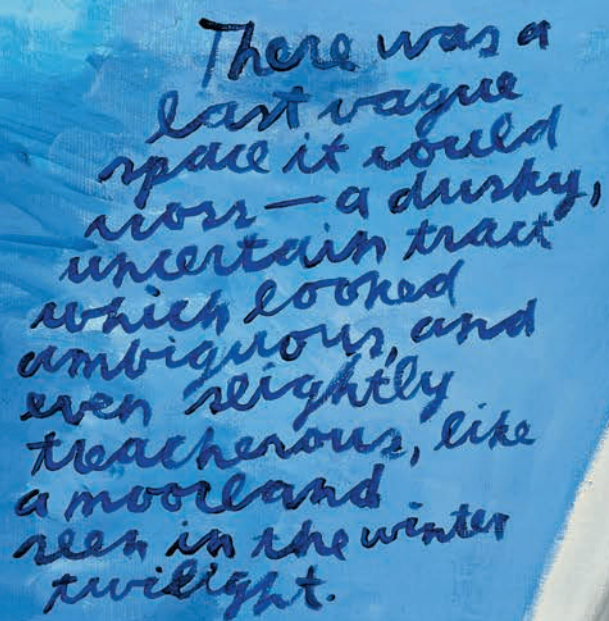 There was a
last vague
space it could
cross — a dusky,
uncertain tract
which looked
ambiguous, and
even slightly
treacherous, like
a moorland
seen in the winter
twilight.